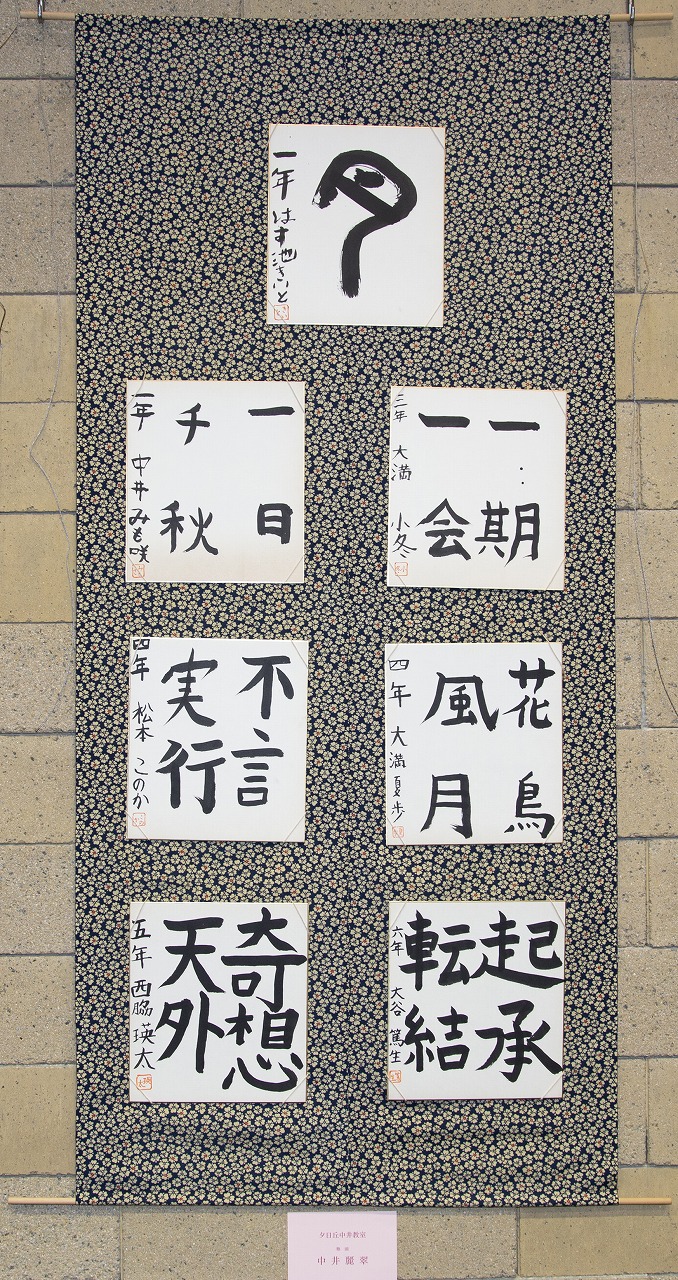 夕
一年 はす池きいと
一期
一会
三年 大満 小冬
一日
千秋
一年 中井みも咲
花鳥
風月
四年 大満夏歩
不言
実行
四年 松本 このか
起承
転結
六年 大谷 篤生
奇想
天外
五年 西脇 瑛太
夕日丘中井教室
中井麗翠